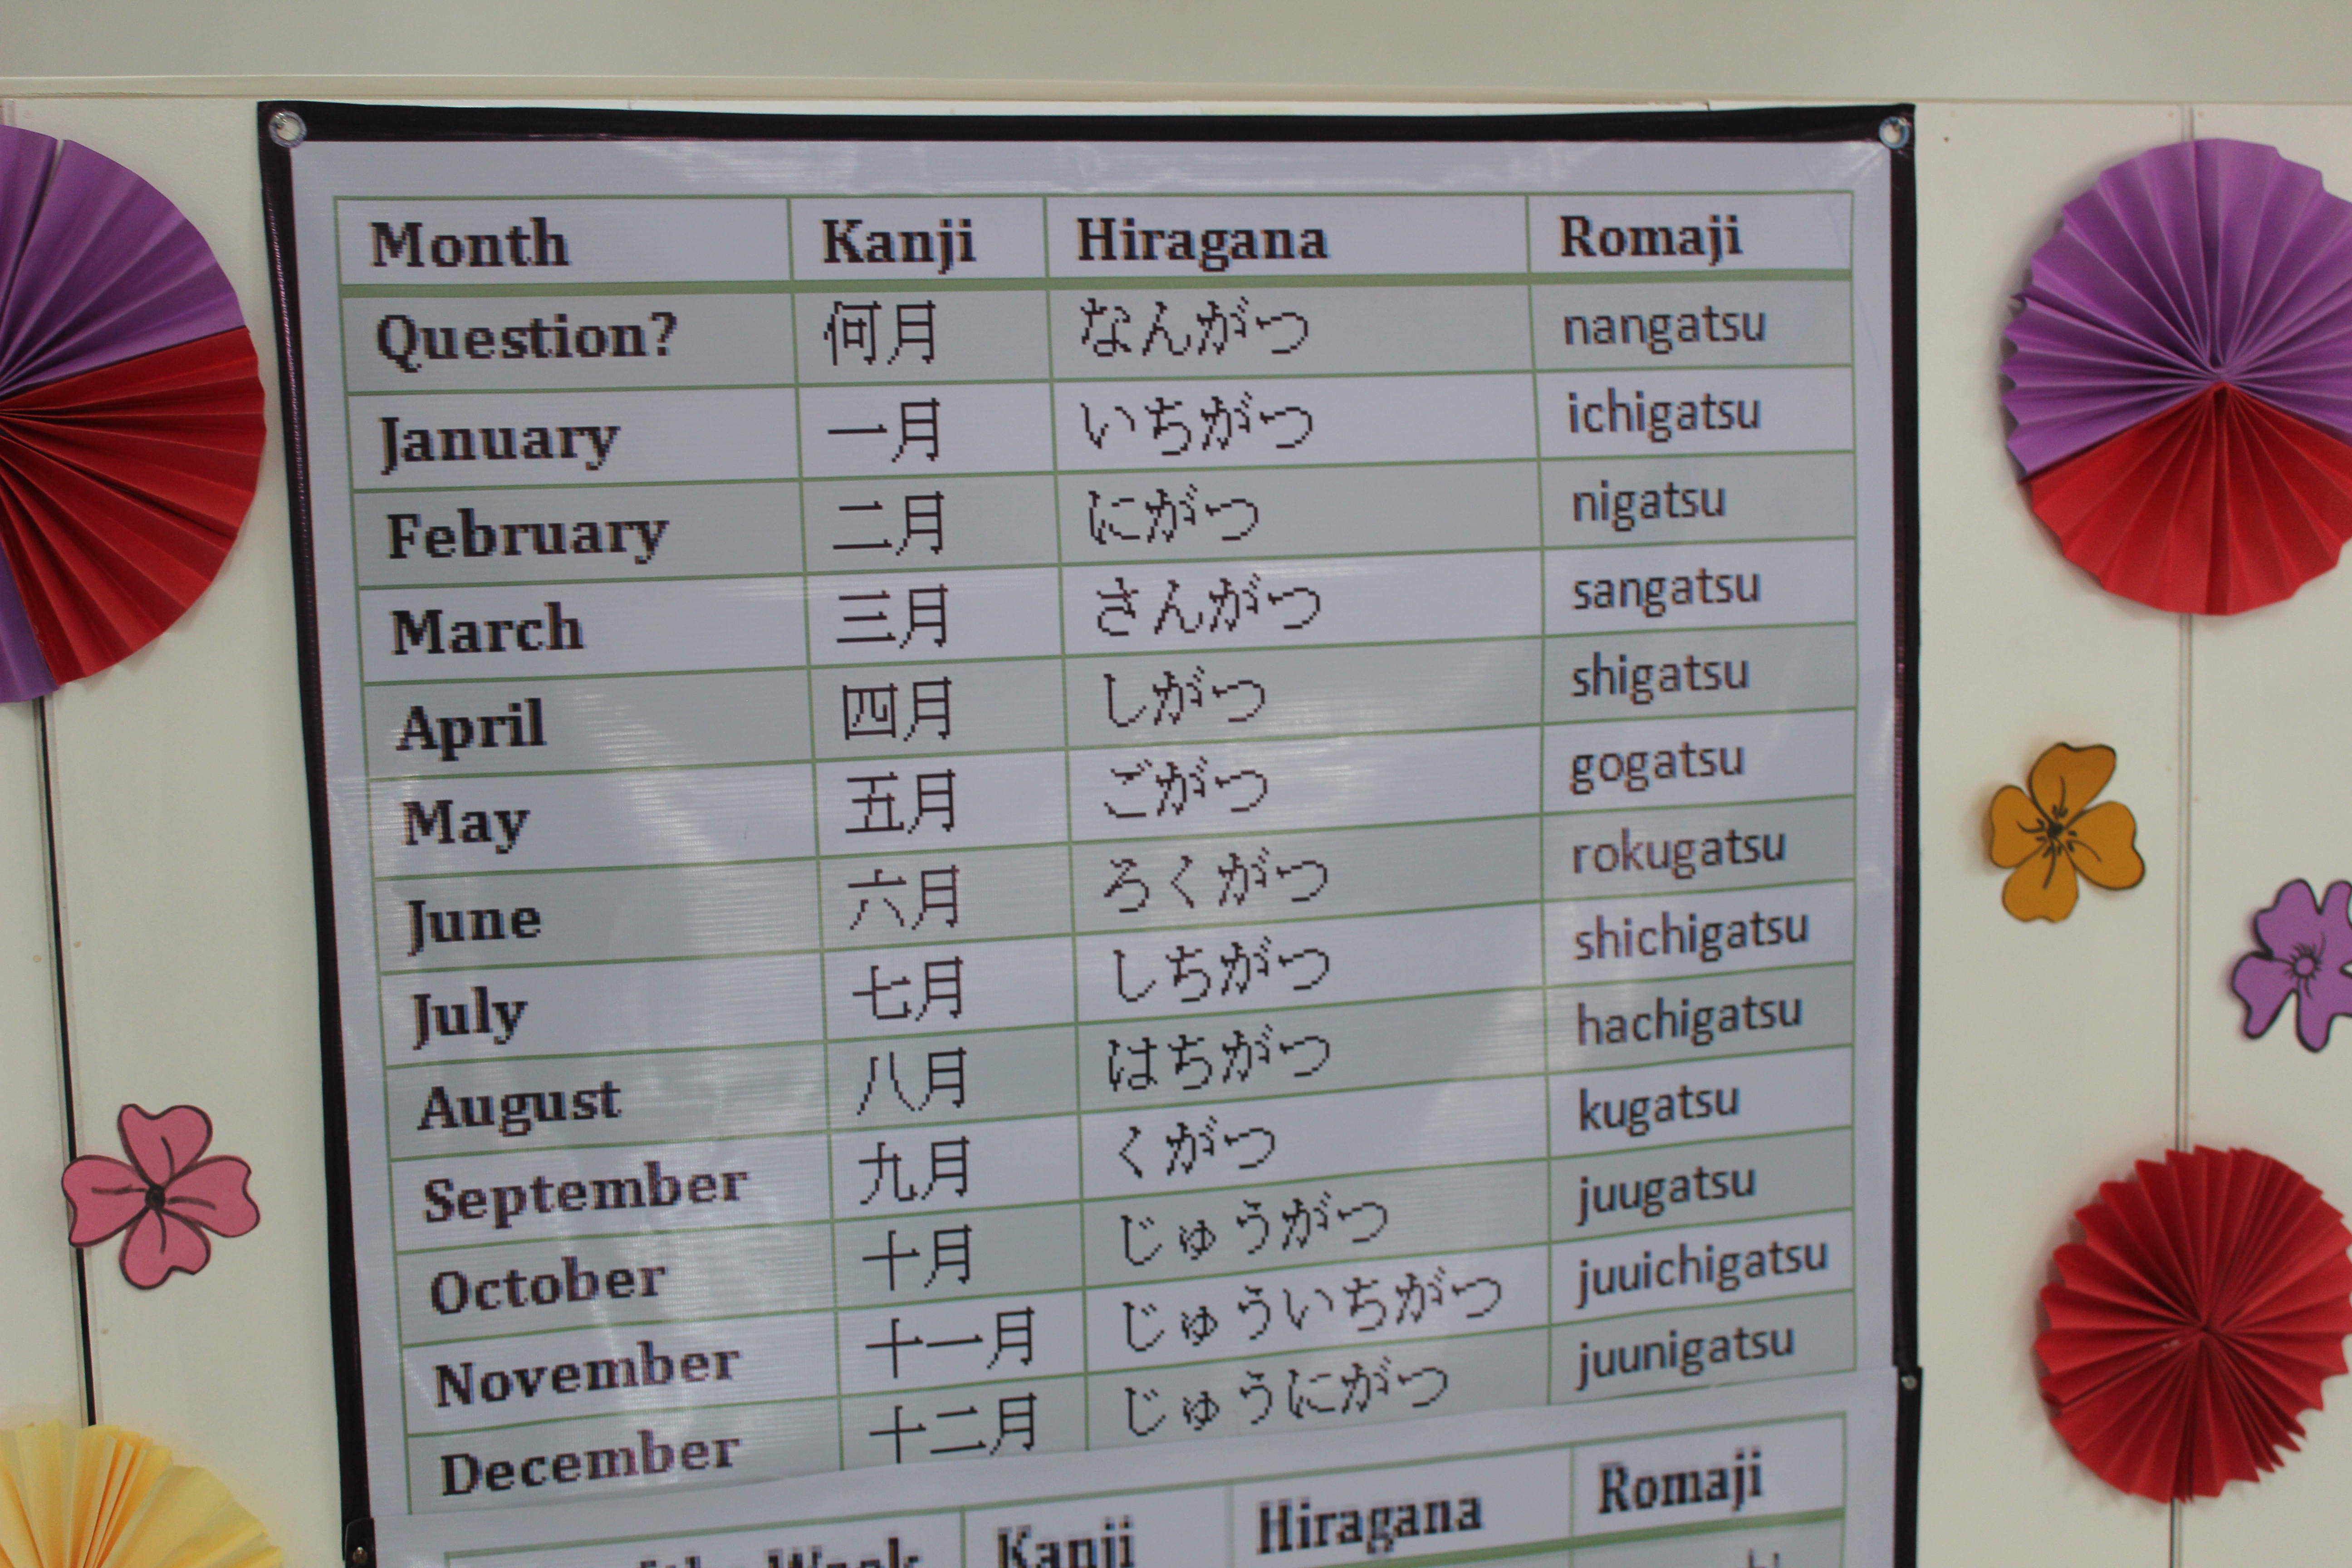 Month Kanji Hiragana Romaji
Question? 何月 なんがつ nangatsu
January 一月 いちがつ ichigatsu
February 二月 にがつ nigatsu
March 三月 さんがつ sangatsu
April 四月 しがつ shigatsu
May 五月 ごがつ gogatsu
June 六月 ろくがつ rokugatsu
July 七月 しちがつ shichigatsu
August 八月 はちがつ hachigatsu
September 九月 くがつ kugatsu
October 十月 じゅうがつ juugatsu
November 十一月 じゅういちがつ juuichigatsu
December 十二月 じゅうにがつ juunigatsu
the Week Kanji Hiragana Romaji